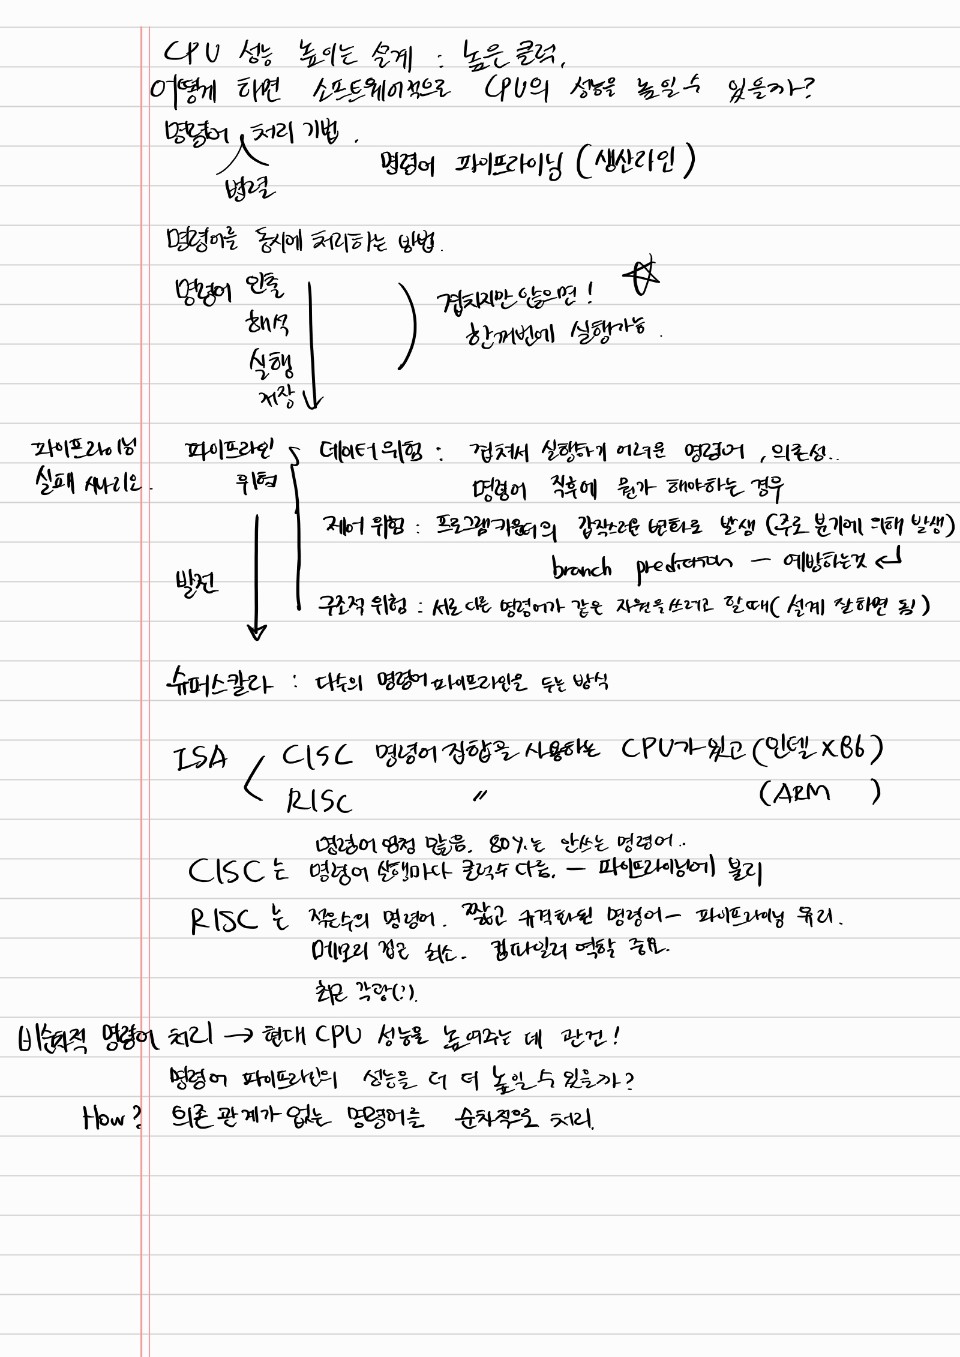 CPU 성능 높이는 설계 : 높은 클럭,
어떻게 하면 소프트웨어적으로 CPU의 성능을 높일 수 있을까?
명령어 처리 기법.
병렬
명령어 파이프라이닝 (생산라인)
명령어를 동시에 처리하는 방법.
명령어 인출
해석
실행
저장
겹치지만 않으면!
한꺼번에 실행가능.
파이프라이닝
실패 시나리오.
파이프라인
위험
발전
데이터 위험 : 겹쳐서 실행하기 어려운 명령어, 의존성..
명령어 직후에 뭔가 해야하는 경우
제어 위험 : 프로그램 카운터의 갑작스러운 변화로 발생 (주로 분기에 의해 발생)
branch prediction — 예방하는것
구조적 위험 : 서로 다른 명령어가 같은 자원을 쓰려고 할 때 (설계 잘하면 됨)
슈퍼스칼라 : 다수의 명령어 파이프라인을 두는 방식
ISA CISC 명령어 집합을 사용하는 CPU가 있고 (인텔 X86)
RISC 〃 (ARM )
명령어 엄청 많음. 80%는 안쓰는 명령어..
CISC는 명령어 실행마다 클럭수 다름. — 파이프라이닝에 불리
RISC는 적은수의 명령어. 짧고 규격화된 명령어 — 파이프라이닝 유리.
메모리 접근 최소. 컴파일러 역할 중요.
최근 각광(?).
비순차적 명령어 처리 → 현대 CPU 성능을 높여주는 데 관건!
명령어 파이프라인의 성능을 더 더 높일 수 있을까?
How? 의존 관계가 없는 명령어를 순차적으로 처리.